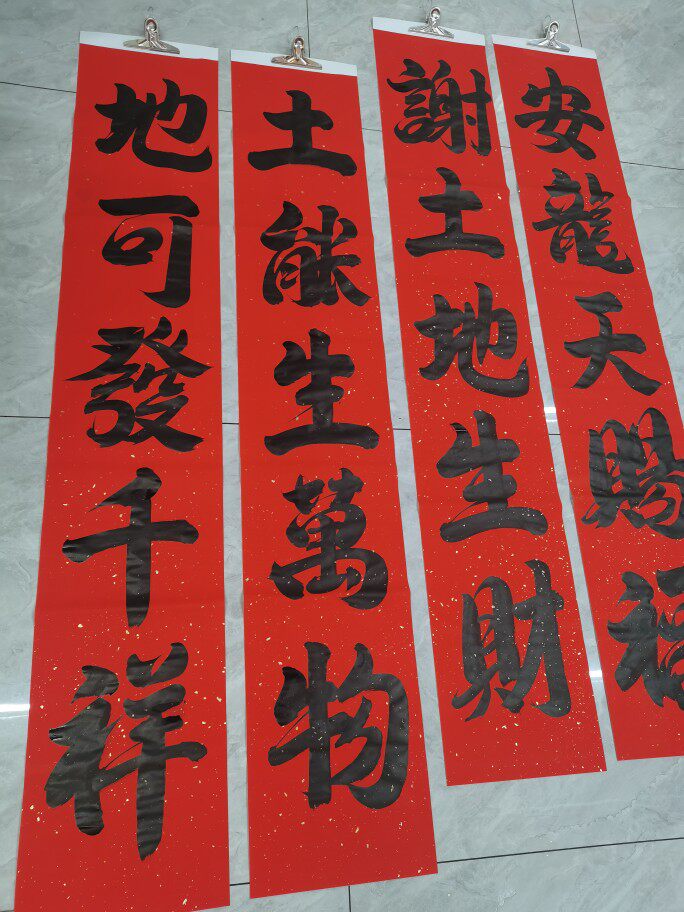 安龍天賜福
謝土地生財
土能生萬物
地可發千祥